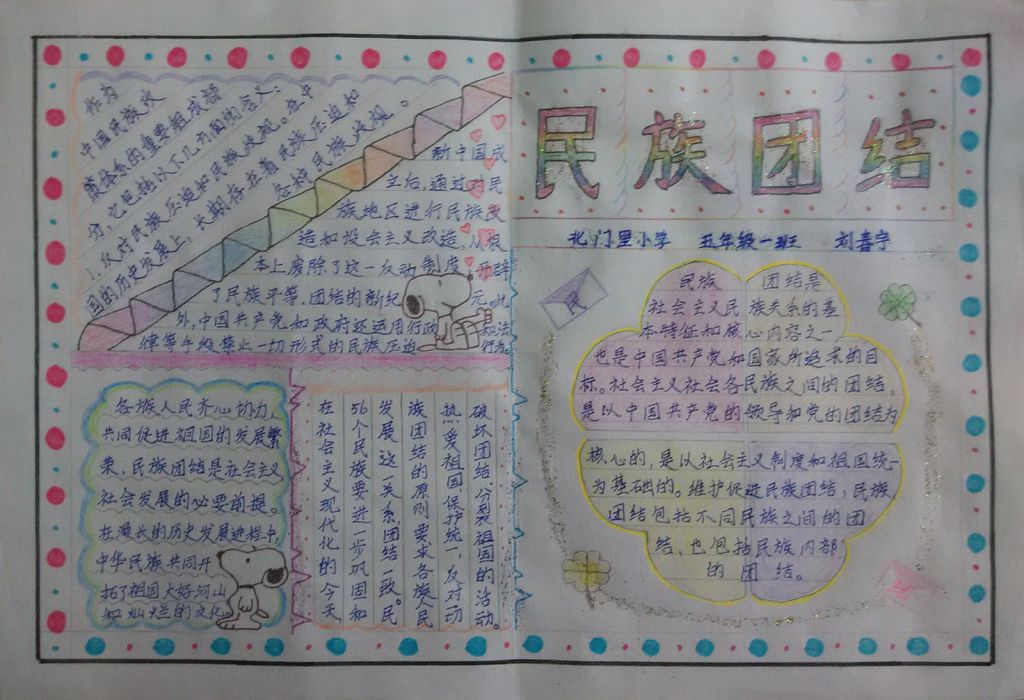 作为
中国民族政
策体系的重要组成部
分,它包括以下几方面的含义:
1.反对民族压迫和民族歧视。在中
国的历史发展上,长期存在着民族压迫和
各种民族歧视。
新中国成
立后,通过对民
族地区进行民族改
造和设会主义改造,从根
本上废除了这一反动制度,开辟
了民族平等、团结的新纪元。此
外,中国共产党和政府还运用行政和法
律等手段禁止一切形式的民族压迫行为。
各族人民齐心协力,
共同促进祖国的发展繁
荣,民族团结是社会主义
社会发展的必要前提。
在漫长的历史发展进程中,
中华民族共同开
拓了祖国大好河山
和灿烂的文化。
在社会主义现代化的今天
56个民族要进一步巩固和
发展这一关系,团结一致。民
族团结的原则要求各族人民
热爱祖国,保护统一,反对动
破坏团结、分裂祖国的活动。
民族团结
北门里小学 五年级一班 刘喜宇
民
民族 团结是
社会主义民族关系的基
本特征和核心内容之一
也是中国共产党和国家所追求的目
标。社会主义社会各民族之间的团结,
是以中国共产党的领导和党的团结为
核心的,是以社会主义制度和祖国统一
为基础的。维护促进民族团结,民族
团结包括不同民族之间的团
结,也包括民族内部
的团结。